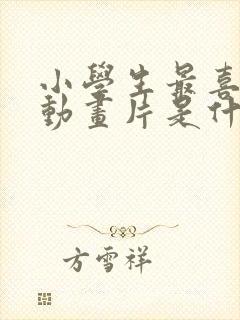 小學生最喜
動畫片是什
方雪祥